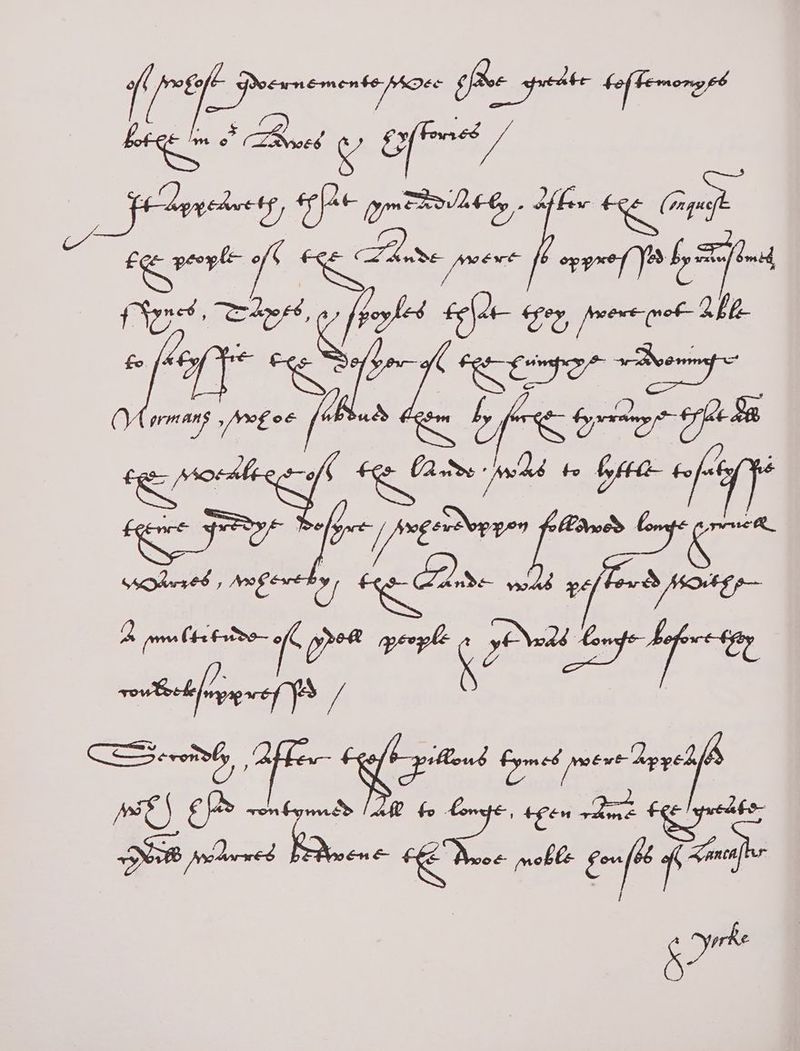 off whose governementes wee have greate testemonyes
bothe in or Lawes & hystories /
It appearethe, that ymediately, after the Conquest
the people off the Lande were so oppressed by raunsomes,
fynes, Taxes, & spoyles that they were not able
to satysffie the desyer off the hungrye & ravenninge
Normans, whoe subdued them by suche tyrannye that all
the wealthe off the lande was to lyttle to satysffie
theire gredye desyre / wherevppon followed longe cyvell
warres, whereby, the Lande was pestered withe
a multitude off ydell people & yt was longe before they
could be suppressed /
Secondly, After those pillous tymes were appeased
wch had contynued all to longe, then came the greate
cyvill warres betwene the twoe noble houses off Lancaster
& Yorke